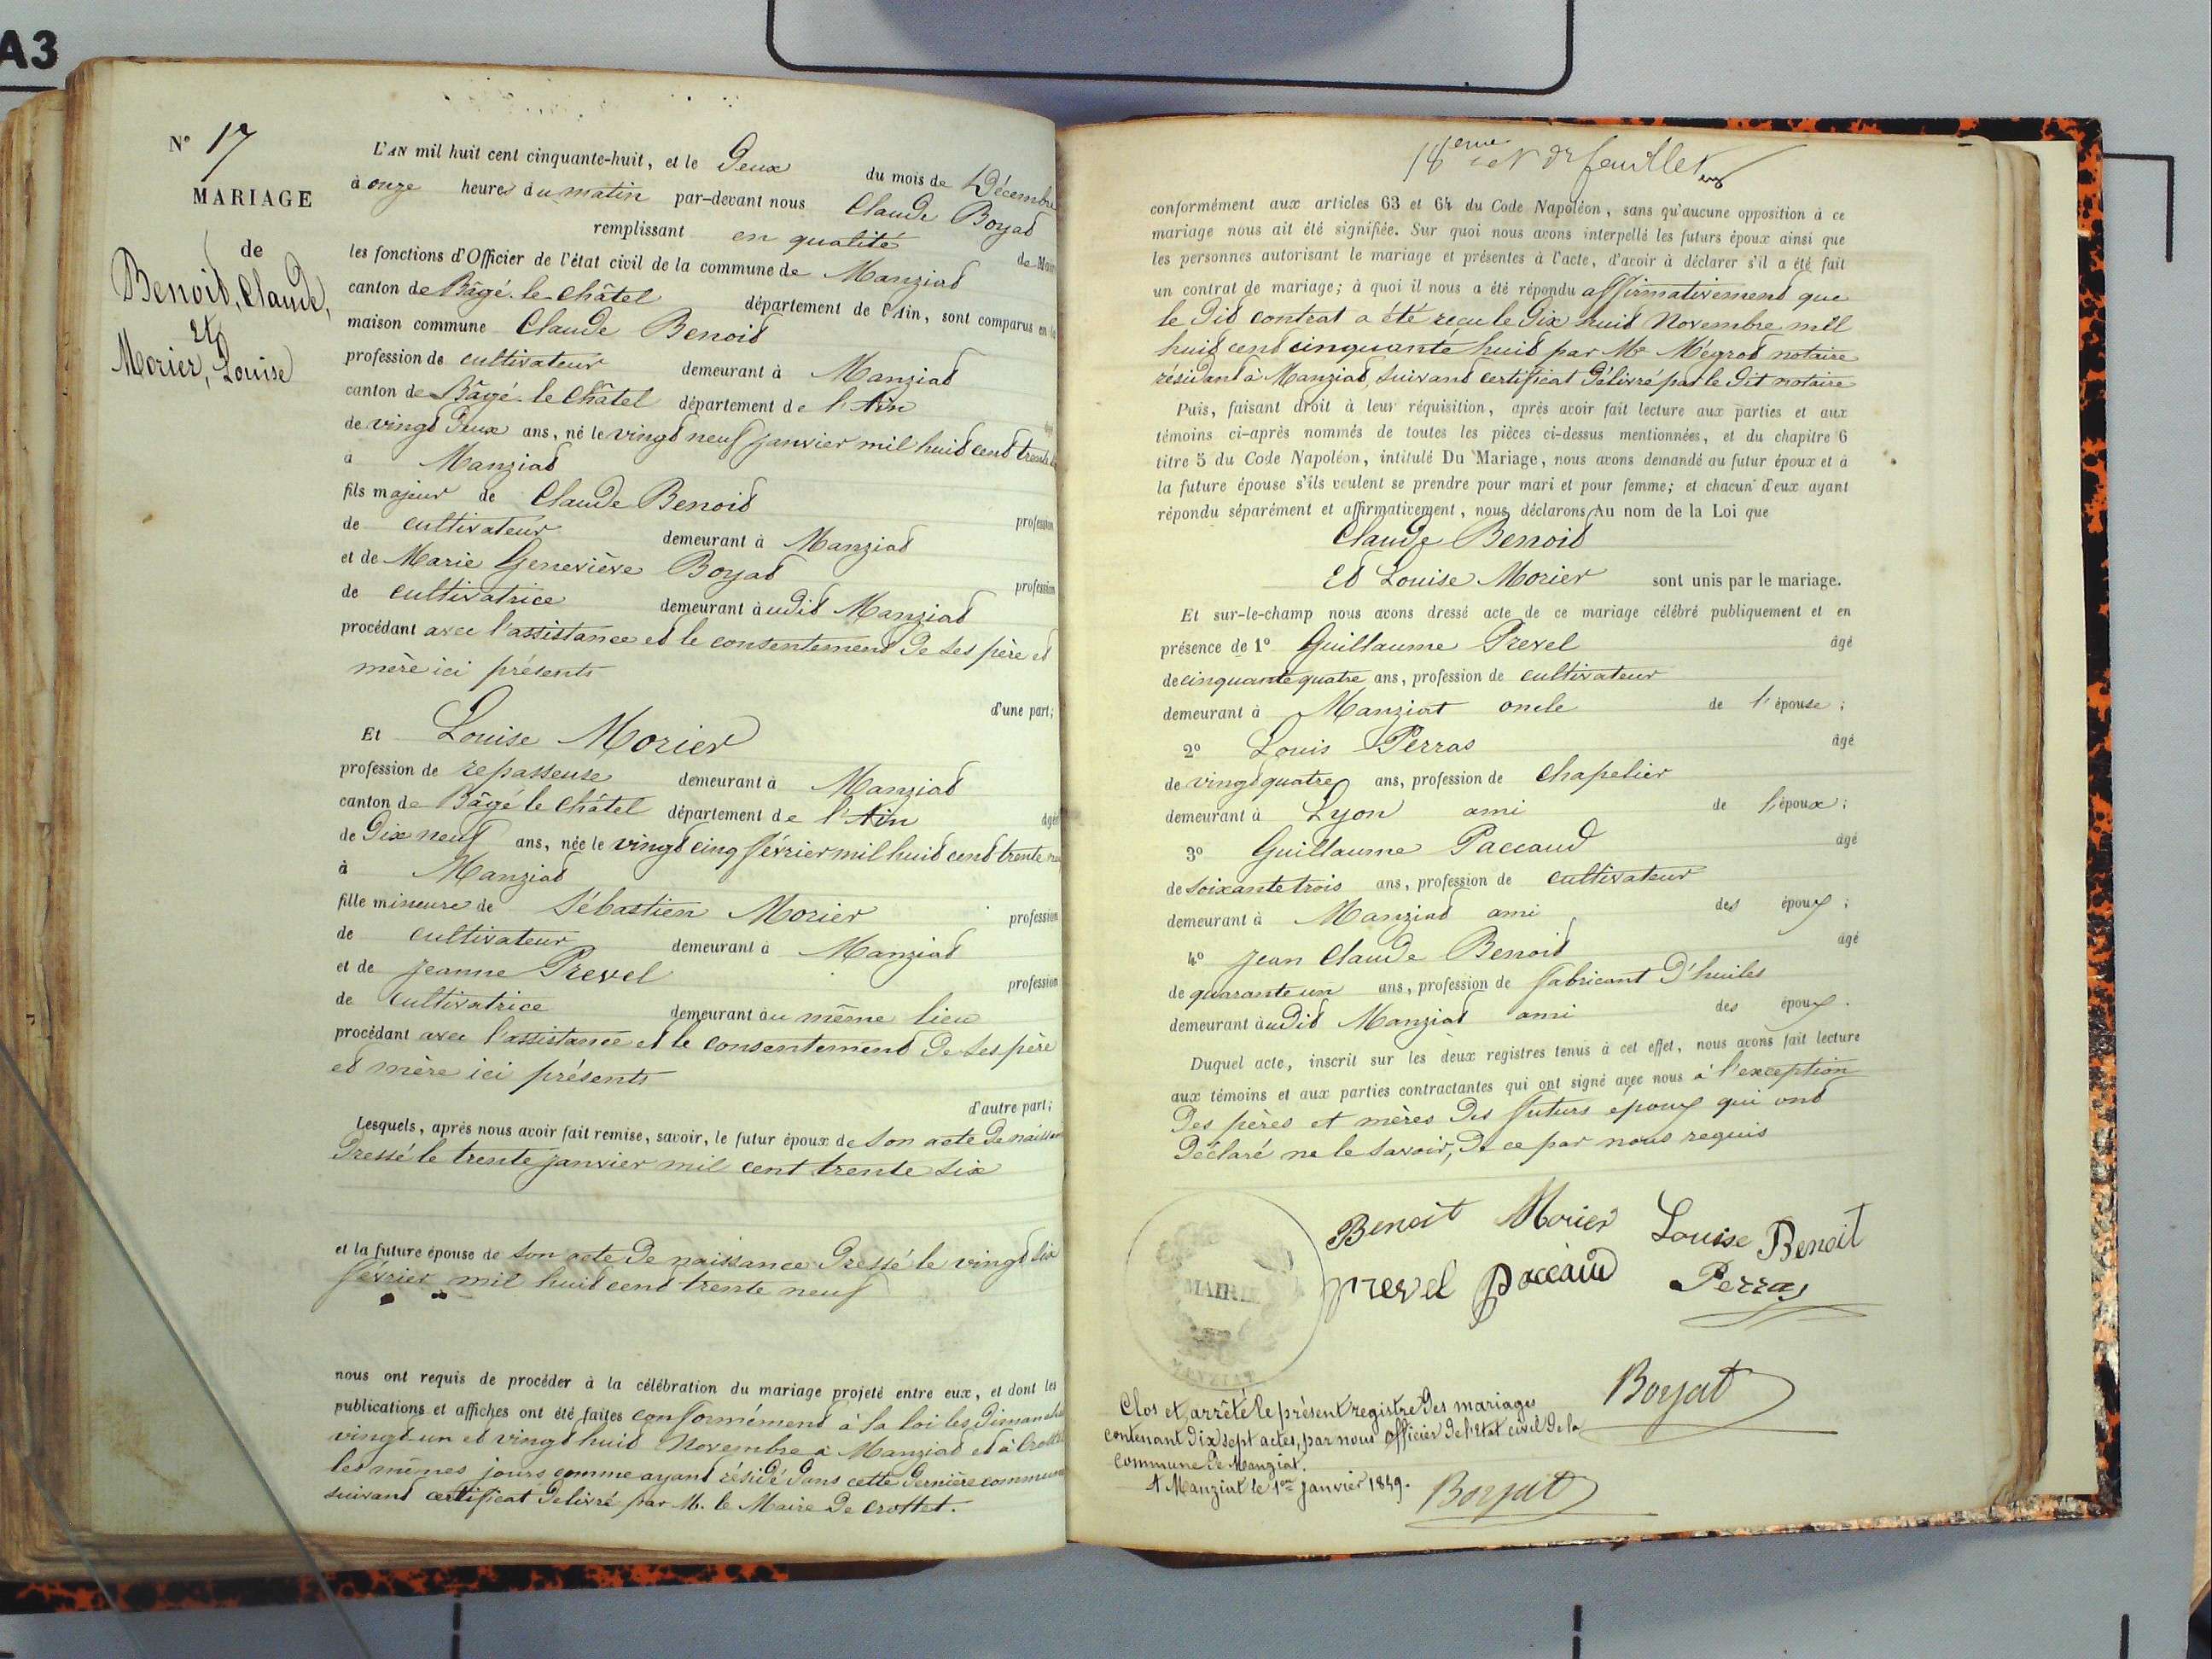 A3
N° 17
MARIAGE
de
Benoit, Claude,
et
Morier, Louise
L'AN mil huit cent cinquante-huit, et le Deux du mois de Décembre
à onze heures du matin par-devant nous Claude Boyat
remplissant en qualité de Maire
les fonctions d'Officier de l'état civil de la commune de Manziat
canton de Bâgé-le-Châtel département de l'Ain, sont comparus en la
maison commune Claude Benoit
profession de cultivateur demeurant à Manziat
canton de Bâgé-le Châtel département de l'Ain
de vingt deux ans, né le vingt neuf janvier mil huit cent trente
à Manziat
fils majeur de Claude Benoit profession
de cultivateur demeurant à Manziat
et de Marie Geneviève Boyat profession
de cultivatrice demeurant àudit Manziat
procédant avec l'assistance et le consentement de ses père et
mère ici présents
d'une part;
Et Louise Morier
profession de repasseuse demeurant à Manziat
canton de Bâgé le Châtel département de l'Ain âgée
de Dix neuf ans, née le vingt cinq février mil huit cent trente
à Manziat
fille mineure de Sébastien Morier profession
de cultivateur demeurant à Manziat
et de Jeanne Prevel profession
de cultivatrice demeurant àu même lieu
procédant avec l'assistance et le consentement de ses père
et mère ici présents
d'autre part;
Lesquels, après nous avoir fait remise, savoir, le futur époux de son acte de naissan
dressé le trente janvier mil cent trente six
et la future épouse de son acte de naissance dressé le vingt six
février mil huit cent trente neuf
nous ont requis de procéder à la célébration du mariage projeté entre eux, et dont les
publications et affiches ont été faites conformément à la loi les dimanches
vingt-un et vingt huit Novembre à Manziat et à Crottet
les mêmes jours comme ayant résidé dans cette dernière commune
suivant certificat délivré par M. le Maire de Crottet.
18eme et dr feuillet
conformément aux articles 63 et 64 du Code Napoléon, sans qu'aucune opposition à ce
mariage nous ait été signifiée. Sur quoi nous avons interpellé les futurs époux ainsi que
les personnes autorisant le mariage et présentes à l'acte, d'avoir à déclarer s'il a été fait
un contrat de mariage; à quoi il nous a été répondu affirmativement que
le dit contrat a été reçu le dix huit Novembre mil
huit cent cinquante huit par Me Mégrot notaire
résidant à Manziat, suivant certificat délivré par le dit notaire
Puis, faisant droit à leur réquisition, après avoir fait lecture aux parties et aux
témoins ci-après nommés de toutes les pièces ci-dessus mentionnées, et du chapitre 6
titre 5 du Code Napoléon, intitulé Du Mariage, nous avons demandé au futur époux et à
la future épouse s'ils veulent se prendre pour mari et pour femme; et chacun d'eux ayant
répondu séparément et affirmativement, nous déclarons Au nom de la Loi que
Claude Benoit
Et Louise Morier sont unis par le mariage.
Et sur-le-champ nous avons dressé acte de ce mariage célébré publiquement et en
présence de 1° Guillaume Prevel âgé
de cinquante quatre ans, profession de cultivateur
demeurant à Manziat oncle de l'épouse;
2° Louis Perras âgé
de vingt quatre ans, profession de Chapelier
demeurant à Lyon ami de l'époux;
3° Guillaume Paccaud âgé
de soixante trois ans, profession de cultivateur
demeurant à Manziat ami des époux;
4° Jean Claude Benoit âgé
de quarante un ans, profession de fabricant d'huiles
demeurant àudit Manziat ami des époux.
Duquel acte, inscrit sur les deux registres tenus à cet effet, nous avons fait lecture
aux témoins et aux parties contractantes qui ont signé avec nous à l'exception
des pères et mères des futurs époux qui ont
déclaré ne le savoir, de ce par nous requis
Benoit Morier Louise Benoit
prevel paccaud Perras
MAIRIE
MANZIAT
Boyat
Clos et arrêté le présent registre des mariages
contenant dix sept actes, par nous officier de l'Etat civil de la
commune de Manziat.
A Manziat le 1er janvier 1859.
Boyat